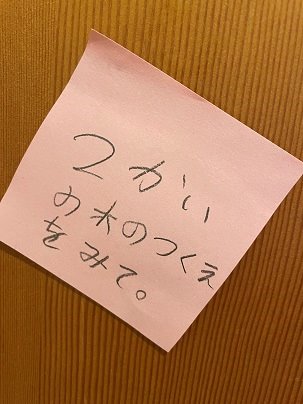 2かい
の木のつくえ
をみて。